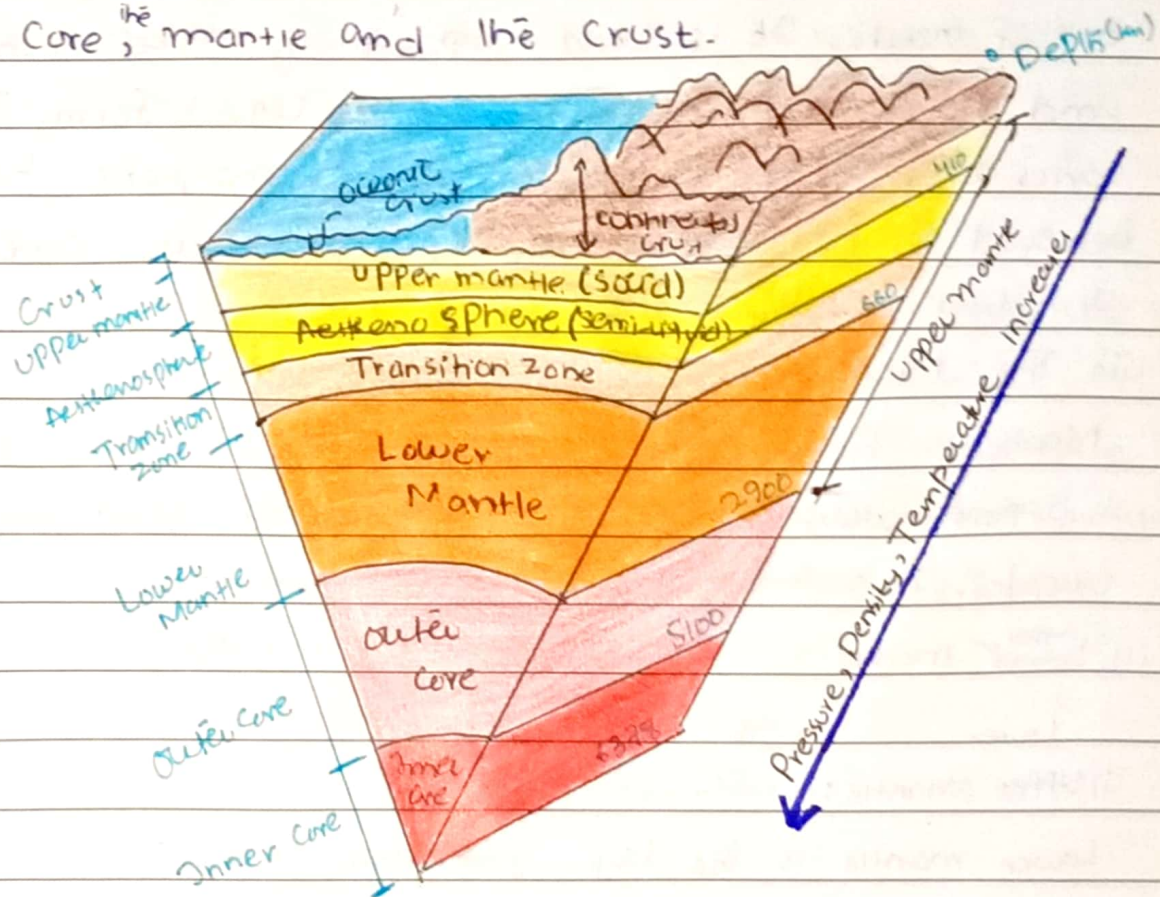 Core, the mantle and the Crust.
Depth (km)
oceanic
crust
crust
410
Upper mantle (solid)
Aesthenosphere (semi-liquid)
660
Transition Zone
Lower
Mantle
2900
outer
core
5100
Inner
core
Crust
Upper mantle
Aesthenosphere
Transition
zone
Lower
Mantle
Outer Core
Inner Core
Upper mantle
Pressure, Density, Temperature increases
Upper mantle
Lower mantle